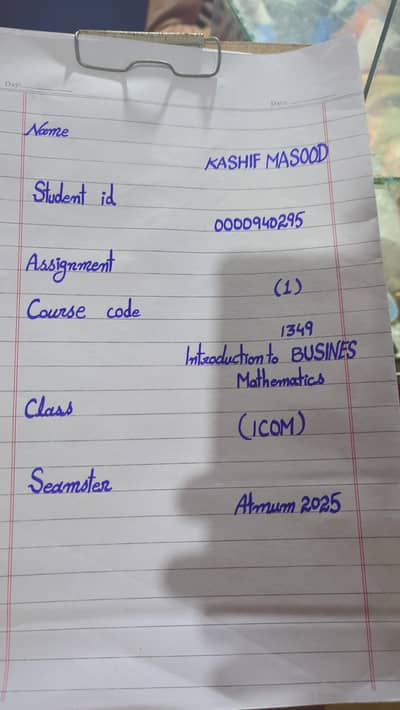 Day:
Date:
Name
KASHIF MASOOD
Student id
0000940295
Assignment
(1)
Course code
1349
Introduction to BUSINES
Mathematics
Class
(ICOM)
Seamster
Atmum 2025